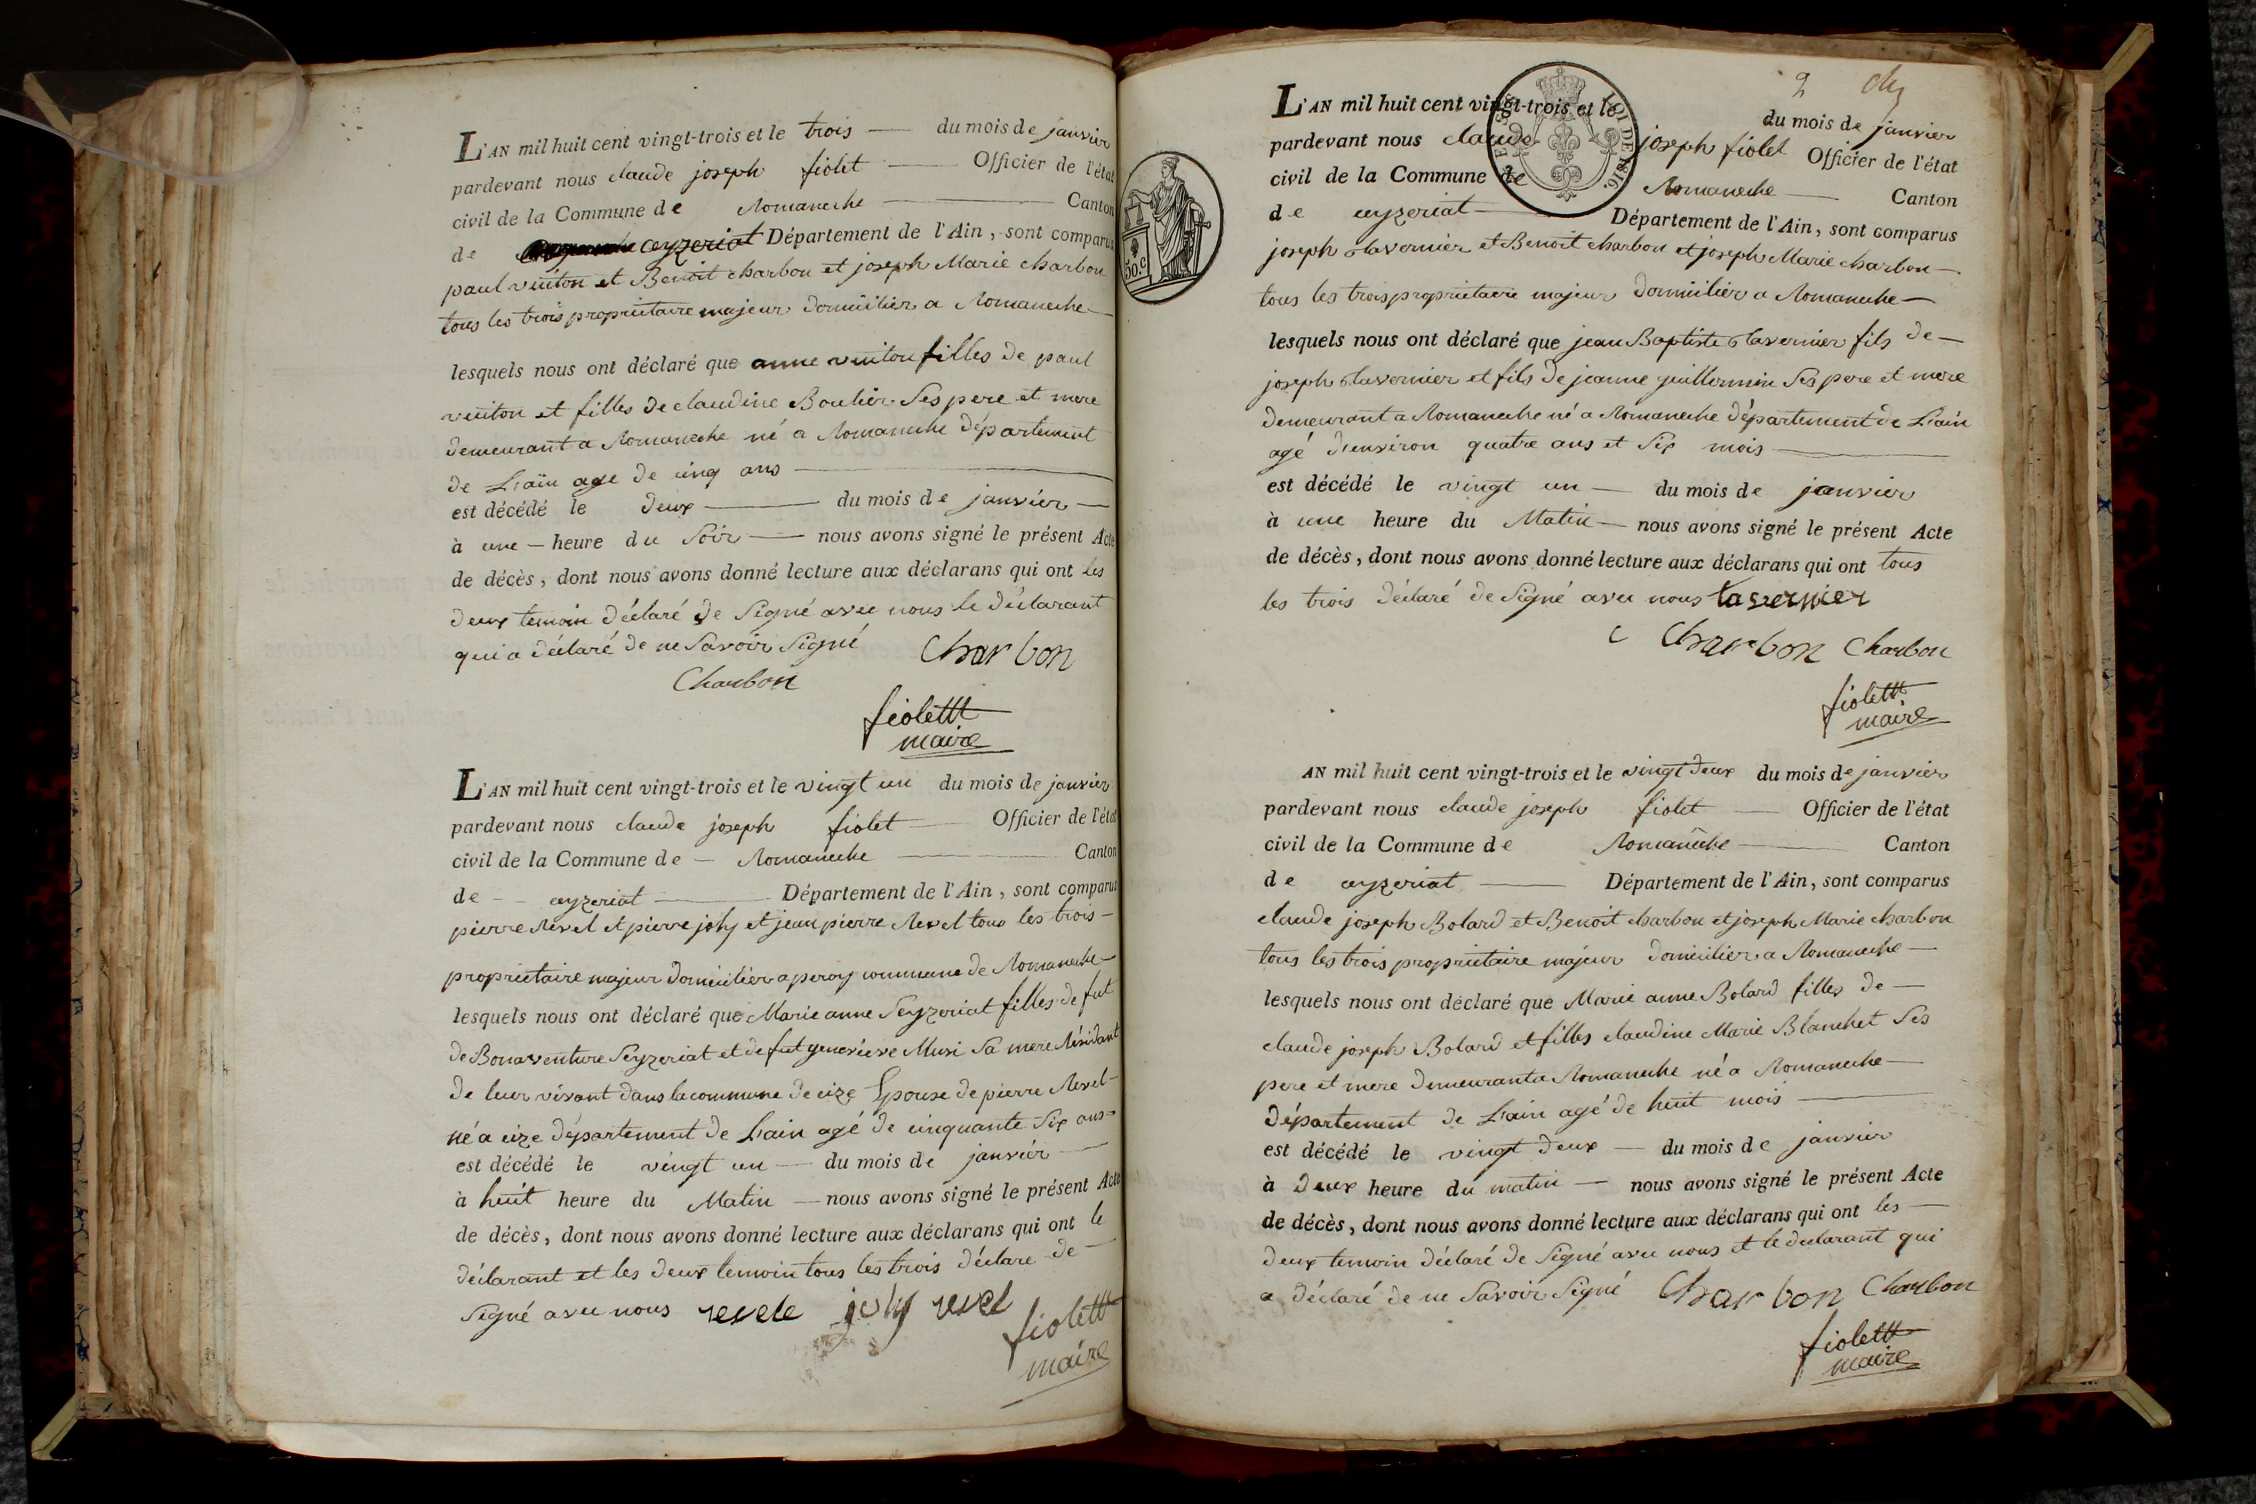 L'AN mil huit cent vingt-trois et le trois du mois de janvier
pardevant nous claude joseph fiolet Officier de l'état
civil de la Commune de Romaneche Canton
de ceyzeriat Département de l'Ain, sont comparus
paul vuiton et Benoit charbon et joseph Marie charbon
tous les trois proprietaire majeur domicilier a Romaneche
lesquels nous ont déclaré que anne vuiton filles de paul
vuiton et filles de claudine Boulier Ses pere et mere
demeurant a Romaneche né a Romaneche département
de L'ain age de cinq ans
est décédé le deux du mois de janvier
à une heure du Soir nous avons signé le présent Acte
de décès, dont nous avons donné lecture aux déclarans qui ont les
deux temoin déclaré de Signé avec nous le déclarant
qui a déclaré de ne Savoir Signé Charbon
Charbon
fiolettt
maire
L'AN mil huit cent vingt-trois et le vingt un du mois de janvier
pardevant nous claude joseph fiolet Officier de l'état
civil de la Commune de Romaneche Canton
de ceyzeriat Département de l'Ain, sont comparus
pierre Revel et pierre joly et jean pierre Revel tous les trois
proprietaire majeur domicilier a commune de Romaneche
lesquels nous ont déclaré que Marie anne Seyzeriat filles de fut
de Bonaventure Seyzeriat et de fut genevieve Musi Sa mere Résidant
de leur vivant dans la commune de cize Epouse de pierre Revel
né a cize département de L'ain agé de cinquante Six ans
est décédé le vingt un du mois de janvier
à huit heure du Matin nous avons signé le présent Acte
de décès, dont nous avons donné lecture aux déclarans qui ont le
déclarant et les deux temoin tous les trois déclare de
Signé avec nous revele joly revel
fiolettt
maire
2
L'AN mil huit cent vingt-trois et le du mois de janvier
pardevant nous claude joseph fiolet Officier de l'état
civil de la Commune de Romaneche Canton
de ceyzeriat Département de l'Ain, sont comparus
joseph tavernier et Benoit charbon et joseph Marie charbon
tous les trois proprietaire majeur domicilier a Romaneche
lesquels nous ont déclaré que jean Baptiste tavernier fils de
joseph tavernier et fils de jeanne guillermin Ses pere et mere
demeurant a Romaneche né a Romaneche département de L'ain
agé d'environ quatre ans et Six mois
est décédé le vingt un du mois de janvier
à une heure du Matin nous avons signé le présent Acte
de décès, dont nous avons donné lecture aux déclarans qui ont tous
les trois déclaré de Signé avec nous tavernier
Charbon Charbon
fiolettt
maire
LOI DE 1816.
50.c
AN mil huit cent vingt-trois et le vingt deux du mois de janvier
pardevant nous claude joseph fiolet Officier de l'état
civil de la Commune de Romaneche Canton
de ceyzeriat Département de l'Ain, sont comparus
claude joseph Bolard et Benoit charbon et joseph Marie charbon
tous les trois proprietaire majeur domicilier a Romaneche
lesquels nous ont déclaré que Marie anne Bolard filles de
claude joseph Bolard et filles claudine Marie Blanchet Ses
pere et mere demeurant a Romaneche né a Romaneche
département de L'ain agé de huit mois
est décédé le vingt deux du mois de janvier
à deux heure du matin nous avons signé le présent Acte
de décès, dont nous avons donné lecture aux déclarans qui ont les
deux temoin déclaré de Signé avec nous et le declarant qui
a déclaré de ne Savoir Signé Charbon Charbon
fiolettt
maire